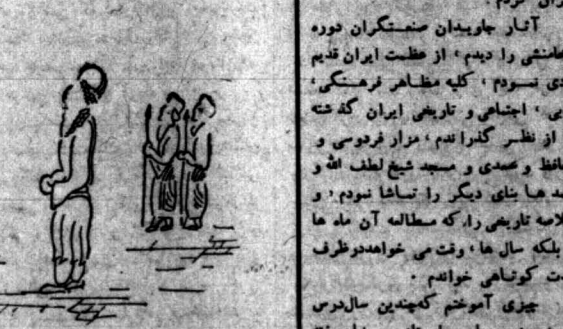 آثار جاویدان صنعتگران دوره
را دیدم ، از عظمت ایران قدیم
نمودم ، کلیه مظاهر فرهنگی ،
، اجتماعی و تاریخی ایران گذشته
از نظر گذراندم ، مزار فردوسی و
و سعدی و مسجد شیخ لطف الله و
ها بنای دیگر را تماشا نمودم ، و
تاریخی را ، که مطالعه آن ماه ها
بلکه سال ها ، وقت می خواهد در ظرف
کوتاهی خواندم .
چیزی آموختم که چندین سال درس